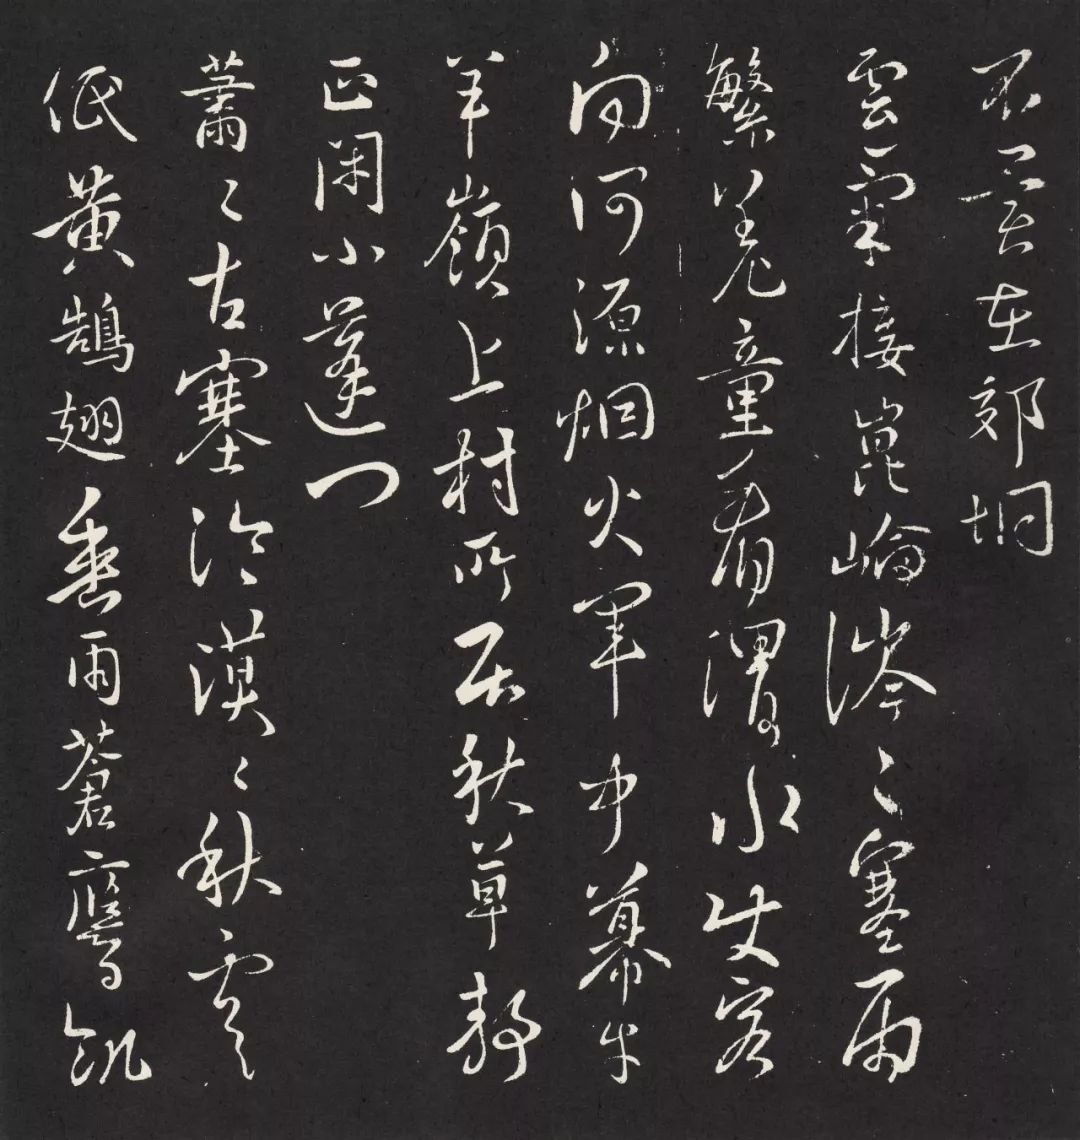 不異在郊坰
雲氣接崑崙涔〻塞雨
繁羌童看渭水使客
向河源烟火軍中幕牛
羊嶺上村所居秋草靜
正閉小蓬門
蕭〻古塞冷漠〻秋雲
低黃鵠翅垂雨蒼鷹飢